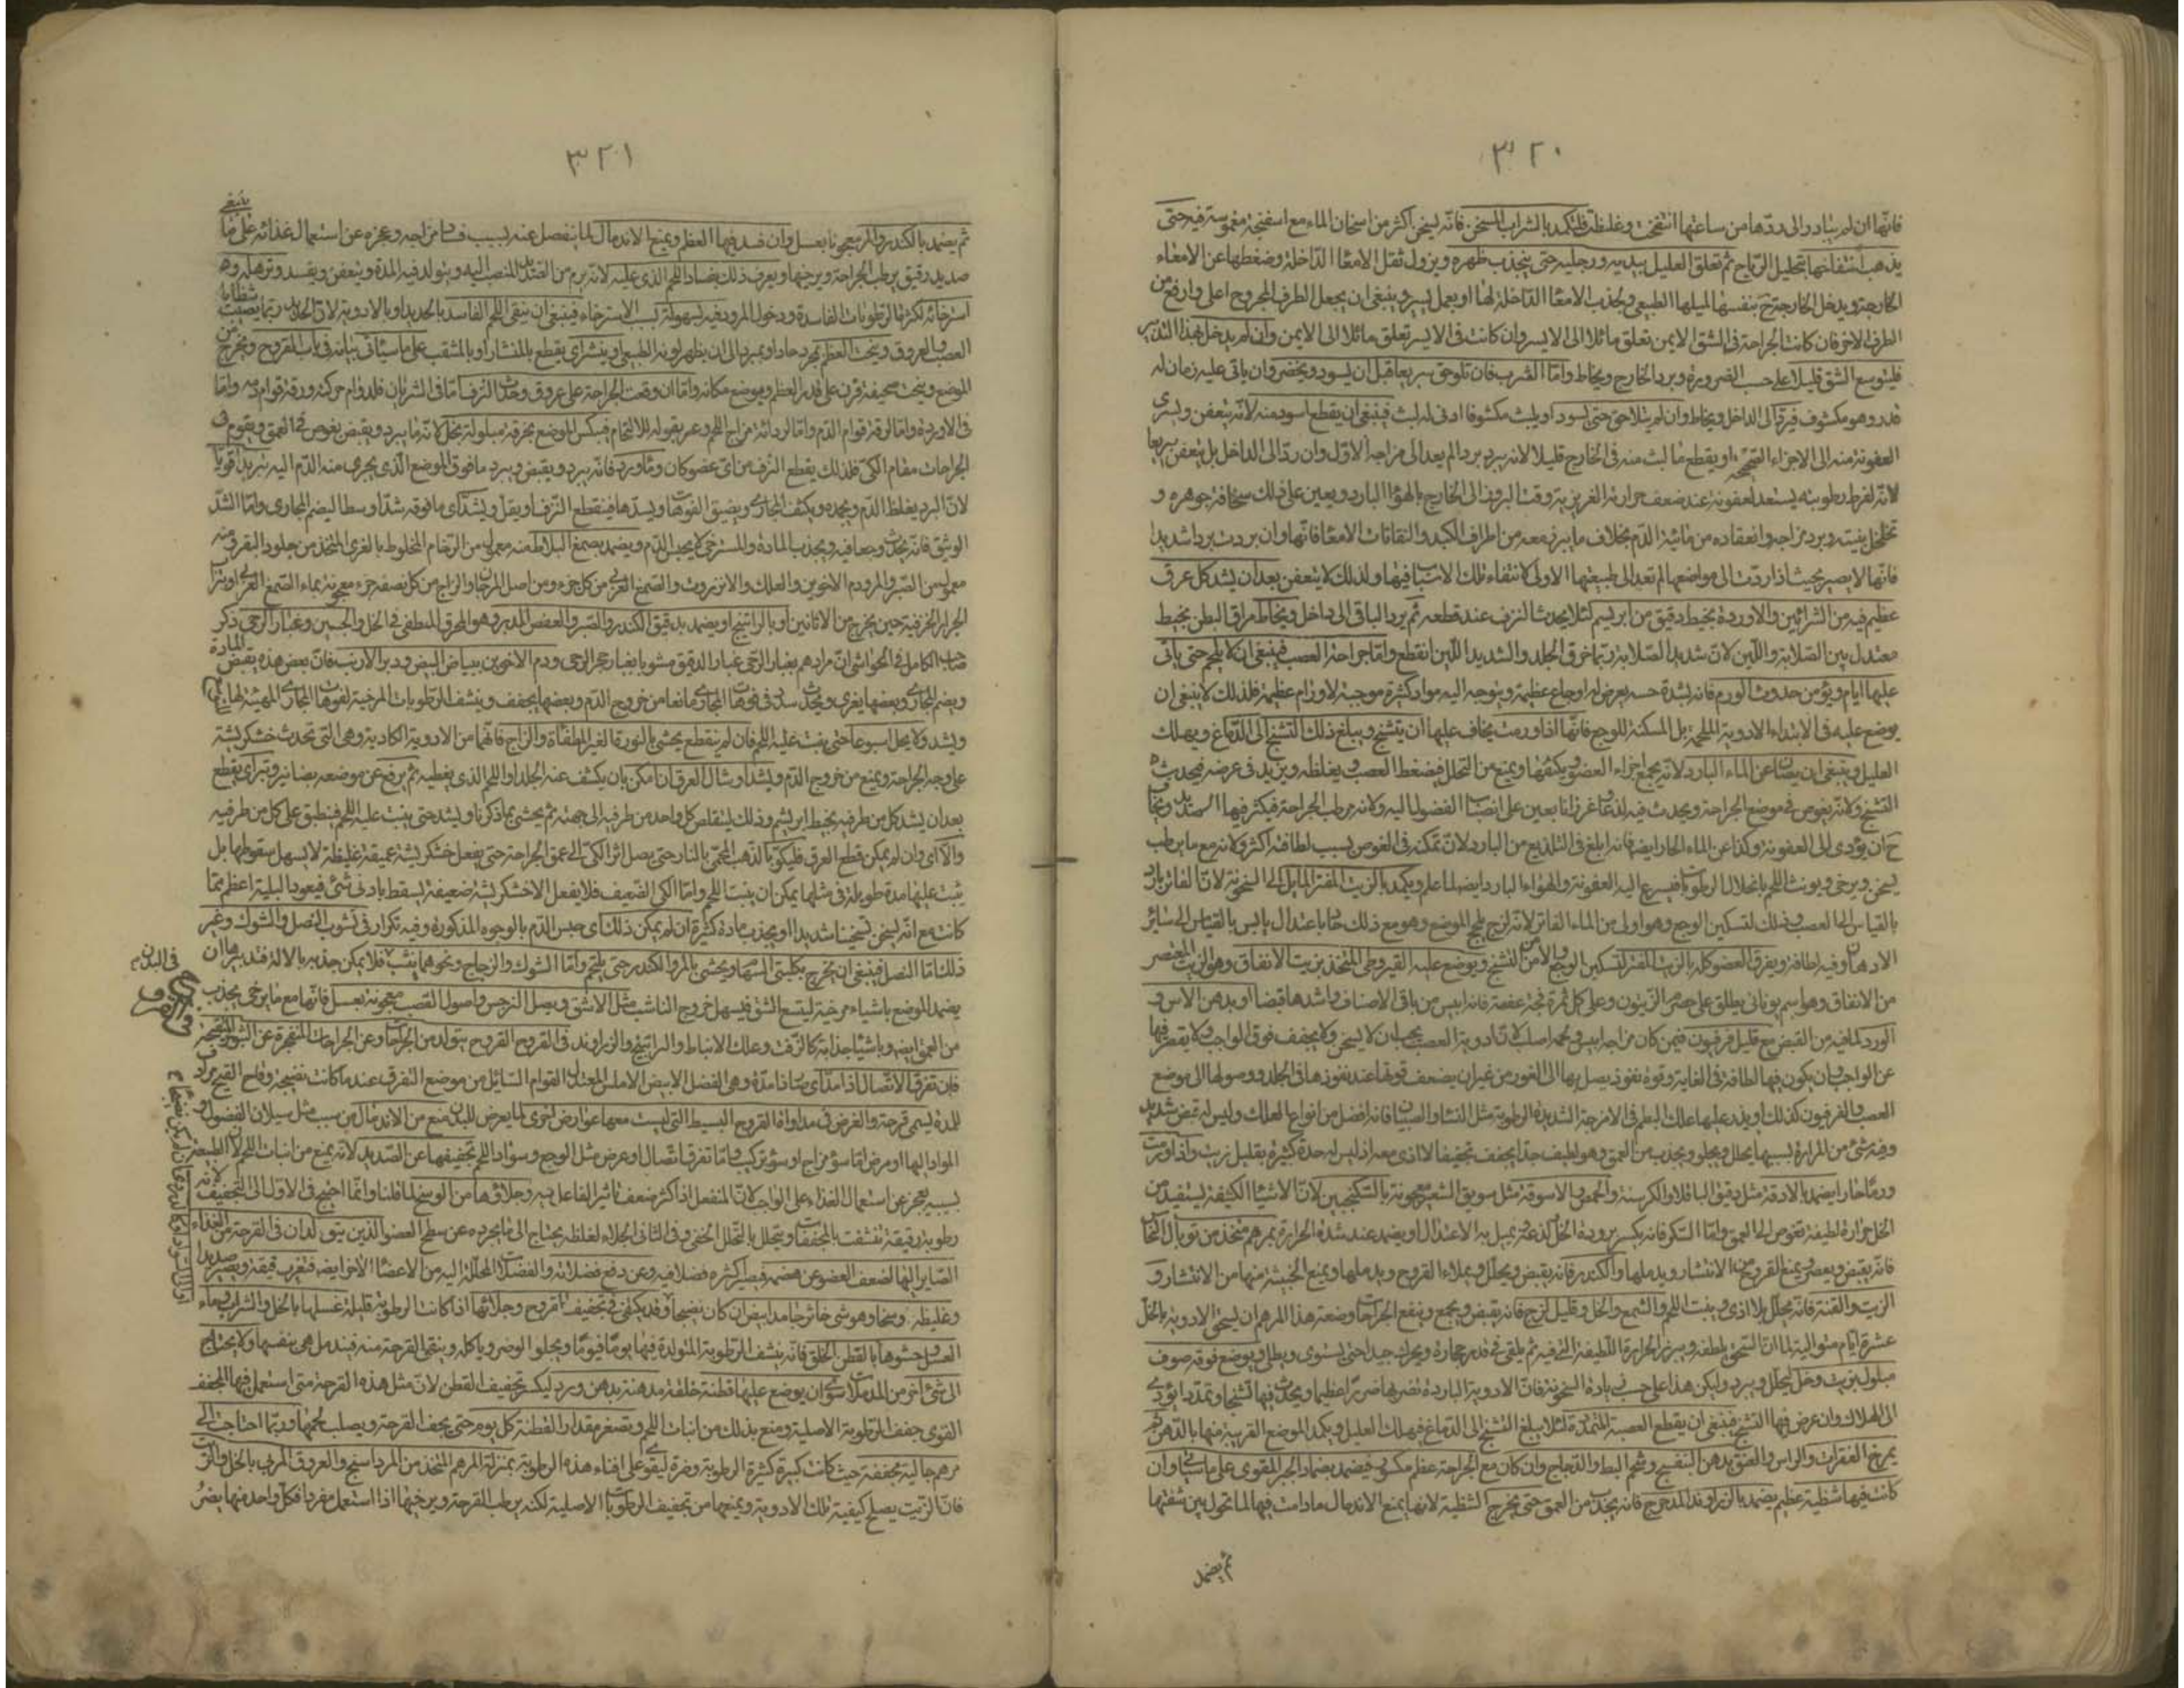 ٣٢٠
فانها ان لم يبادر الى ردّها من ساعتها انتفخت وغلظت فلتكمد بالشراب المسخن فانّه يسخن اكثر من اسخان الماء مع اسفنجة مغموسة فيه حتى
يذهب انتفاخها بتحليل الرّياح ثم تعلق العليل بيديه ورجليه حتى ينجذب ظهره ويزول ثقل الامعاء الدّاخلة وضغطها عن الامعاء
الخارجة ويدخل الخارجة بنفسها لميلها الطبيعى ولجذب الامعاء الدّاخلة لها او بعمل يسير وينبغى ان يجعل الطرف المجروح اعلى وارفع من
الطرف الاخر فان كانت الجراحة فى الشق الايمن تعلق مائلا الى الايسر وان كانت فى الايسر تعلق مائلا الى الايمن وان لم يدخل بهذا التدبير
فليتوسع الشق قليلا على حسب الضرورة ويرد الخارج ويخاط وامّا الثرب فان تلوحق سريعا قبل ان يسود ويخضر وان ياتى عليه زمان له
قدر وهو مكشوف فيرد الى الداخل ويخاط وان لم يتلاحق حتى يسود او يلبث مكشوفا ادنى لبث فينبغى ان يقطع اسود منه لانّه يتعفن ويسرى
العفونة منه الى الاجزاء الصحيحة او يقطع ما لبث منه فى الخارج قليلا لانه يبرد بردا لم يعد الى مزاجه الاول وان ردّ الى الداخل بل يتعفن سريعا
لانّه لفرط رطوبته يستعد لعفونة عند ضعف حرارته الغريزية وقت البروز الى الخارج بالهواء البارد ويعين على ذلك سخافة جوهره و
تخلخل بنيته وبرد مزاجه وانعقاده من مائية الدّم بخلاف ما يبرز معه من اطراف الكبد والتفافات الامعاء فانّها وان بردت بردا شديدا
فانّها لا يصير بحيث اذا ردّت الى مواضعها لم تعد الى طبيعتها الاولى لانتفاء تلك الاسباب فيها ولذلك لا يتعفن بعد ان يشد كل عرق
عظيم فيه من الشرائين والاوردة بخيط دقيق من ابريسم لئلا يحدث النزف عند قطعه ثم يرد الباقى الى داخل ويخاط مراق البطن بخيط
معتدل بين الصّلابة واللّين لان شديد الصّلابة ربّما خرق الجلد والشديد اللّين انقطع وامّا جراحة العصب فينبغى ان لا يلحم حتى ياتى
عليها ايام ويؤمن حدوث الورم فانه لشدة حسه يعرض له اوجاع عظيمة ويتوجه اليه مواد كثيرة موجبة لاورام عظيمة فلذلك لا ينبغى ان
يوضع عليه فى الابتداء الادوية الملحمة بل المسكنة للوجع فانّها اذا ورمت يخاف عليها ان يتشنج ويبلغ ذلك التشنج الى الدّماغ ويهلك
العليل وينبغى ان يصان عن الماء البارد لانّه يجمع اجزاء العضو ويكثفها ويمنع من التحلل فيضغط العصب ويغلظه ويزيد فى عرضه فيحدث
التشنج ولانّه يغوص فى موضع الجراحة ويحدث فيه لذعا وغرزا يعين على انصباب الفضول اليه ولانه يرطب الجراحة فيكثر فيها الصّديد ويخاف
ح ان يؤدى الى العفونة وكذا عن الماء الحار ايضا فانه ابلغ فى التلذيع من البارد لان تمكنه فى الغوص بسبب لطافته اكثر ولانه مع ما يرطب
يسخن ويرخى ويؤنث اللحم بانحلال الرطوبات فيسرع اليه العفونة والهواء البارد ايضا لما علم ويكمد بالزيت المفتر المايل الى السخونة لان الفاتر بارد
بالقياس الى العصب وذلك لتسكين الوجع وهو اولى من الماء الفاتر لانّه لزج يلحج الموضع وهو مع ذلك حار باعتدال يابس بالقياس الى سائر
الادهان وفيه لطافة ويغرق العضو كله بالزيت المفتر لتسكين الوجع والامن من التشنج ويوضع عليه القيروطى المتخذ بزيت الانفاق وهو الزيت المعتصر
من الانفاق وهو اسم يونانى يطلق على حصرم الزيتون وعلى كل ثمرة فجة عفصة فانه ايبس من باقى الاصناف واشدها قبضا او بدهن الآس و
الورد لما فيه من القبض مع قليل فرفيون فيمن كان مزاجه ايبس ولحمه اصلب لان ادوية العصب يجب ان لا يسخن ولا يجفف فوق الواجب ولا يقصر فيها
عن الواجب وان يكون فيها الطافة فى الغاية وقوة نفوذ يصل بها الى الغور من غير ان يضعف قوتها عند نفوذها فى الجلد ووصولها الى موضع
العصب والفرفيون كذلك او يذر عليها علك البطم فى الامزجة الشديدة الرطوبة مثل النساء والصبيان فانه افضل من انواع العلك وليس له قبض شديد
وفيه شئ من المرارة بسببها يحلل ويجلو ويجذب من العمق وهو لطيف جدا يجفف تجفيفا لا اذى معه اذ ليس له حدة كثيرة بقليل زيت واذا ورمت
ورما حارا يضمد بالادقة مثل دقيق الباقلا والكرسنة والحمص والاسوقة مثل سويق الشعير معجونة بالسكنجبين لان الاشياء الكثيفة يستفيد من
الخل حرارة لطيفة تغوص الى العمق وامّا السكر فانه يكسر برودة الخل ولذعه ويميل به الاعتدال او يضمد عند شدة الحرارة بمرهم متخذ من توبال النحاس
فانه يقبض ويعصر ويمنع القروح من الانتشار ويدملها والكندر فانه يقبض ويحلل ويملاء القروح ويدملها ويمنع الخبيثة منها من الانتشار و
الزيت والقنة فانّه يحلل بلا اذى وينبت اللحم والشمع والخل وقليل لزج فانه يقبض ويجمع وينفع الجراحات وصنعة هذا المرهم ان يسحق الادوية بالخل
عشرة ايام متوالية لما ان السحق يلطفه ويبرز الحرارة اللطيفة التى فيه ثم يلقى فى قدر حجارة ويحرك جيدا حتى يستوى ويطلى ويوضع فوقه صوف
مبلول بزيت وخل ليحلل ويبرد وليكن هذا على حسب زيادة السخونة فان الادوية الباردة تضر بها ضررا عظيما ويحدث فيها تشنجا وتمددا يؤدى
الى الهلاك وان عرض فيها التشنج فينبغى ان يقطع العصبة المتمددة لئلا يبلغ التشنج الى الدّماغ فيهلك العليل ويكمد الموضع القريبة منها بالدّهن ثم
يمرخ الفقرات والراس والعنق بدهن البنفسج وشحم البط والدجاج وان كان مع الجراحة عظم مكسور فيضمد بضماد الجبر المقوى على ما سياتى وان
كانت فيها شظية عظيم يضمد بالزراوند المدحرج فانه يجذب من العمق حتى يخرج الشظية لانها يمنع الاندمال ما دامت فيها لما تحول بين شفتها
ثم يضمد
٣٢١
ثم يضمد بالكندر والمر معجونا بعسل وان فسد فيها العظم ويمنع الاندمال لما ينفصل عنه بسبب فساد مزاجه وعجزه عن استعمال غذائه على ما
ينبغى
صديد رقيق يرطب الجراحة ويرخيها ويعرف ذلك بفساد اللحم الذى عليه لانّه يرم من الصّديد المنصب اليه ويتولد فيه المدة ويتعفن ويفسد وترهله وهو
استرخائه لكثرة الرطوبات الفاسدة ودخول المرود فيه لسهولة بسبب الاسترخاء فينبغى ان ينقى اللحم الفاسد بالحديد او بالادوية لان الحديد ربّما يصيب
شظايا
العصب والعروق وينحت العظم بمبرد حاد او يبرد الى ان يظهر لونه الطبيعى او ينشر اى يقطع بالمنشار او بالمثقب على ما سياتى بيانه فى باب القروح ويخرج من
الموضع وينحت صحيفة قرن على قدر العظم ويوضع مكانه وامّا ان وقعت الجراحة على عروق وحدث النزف امّا فى الشريان فلدوام حركته ورقة قوام دمه وامّا
فى الاوردة وامّا لرقة قوام الدّم وامّا لرداءة مزاج اللحم وعسر قبوله للالتحام فيكبس الموضع بخرقة مبلولة بخل لانّه ما يبرد ويقبض يغوص فى العمق ويقوم فى
الجراحات مقام الكىّ فلذلك يقطع النزف من اى عضو كان وماورد فانّه يبرد ويقبض ويبرد ما فوق الموضع الذى يجرى منه الدّم اليه تبريدا قويا
لان البرد يغلظ الدّم ويجمده ويكثف المجارى ويضيق الفوهات ويسدّها فينقطع النزف او يقل ويشد اى ما فوقه شدّا وسطا ليضم المجارى وامّا الشدّ
الوثيق فانّه يحدث وجعا فيه ويجذب المادة والمسترخى لا يحبس الدّم ويضمد بصمغ البلاط منه معمول من الرّخام المخلوط بالغرى المتخذ من جلود البقر ومنه
معمول من الصّبر والمر ودم الاخوين والعلك والانزروت والصمغ العربى من كل جزء ومن اصل المرجان والزاج من كل نصف جزء معجونة بماء الصّمغ العربى او بتراب
الجرار الخزفية حين يخرج من الاتانين او بالراتينج او يضمد بدقيق الكندر والصّبر والعفص المدبر وهو المحرق المطفى فى الخل والجبسين وغبار الرحى ذكر
صاحب الكامل فى الحواشى ان مرادهم بغبار الرّحى غبار الدقيق مشوبا بغبار حجر الرحى ودم الاخوين ببياض البيض ووبر الارنب فان بعض هذه يقبض
المادة
ويضم المجارى وبعضها يغرى ويحدث سدادا فى فوهات المجارى مانعا من خروج الدّم وبعضها يجفف وينشف الرطوبات المرخية لفوهات المجارى المهيئة لها
ويشد ولا يحل اسبوعا حتى ينبت عليه اللحم فان لم ينقطع يحشى بالنورة الغير المطفاة والزاج فانّهما من الادوية الكاوية وهى التى تحدث خشكريشة
على وجه الجراحة ويمنع من خروج الدّم ويشد او يشال العرق ان امكن بان يكشف عنه الجلد او اللحم الذى يغطيه ثم يرفع عن موضعه بصنانير ويبتر اى يقطع
بعد ان يشد كل من طرفيه بخيط ابريشم وذلك ليتقلص كل واحد من طرفيه الى جهته ثم يحشى بما ذكرنا ويشد حتى ينبت عليه اللحم فينطبق على كل من طرفيه
والا اى وان لم يمكن قطع العرق فليكوى بالذهب المحمى بالنار حتى يصل اثر الكىّ الى عمق الجراحة حتى يفعل خشكريشة عميقة غليظة لا يسهل سقوطها بل
يثبت عليها مدة طويلة فى مثلها يمكن ان ينبت اللحم وامّا الكى الضعيف فلا يفعل الا خشكريشة ضعيفة يسقط بادنى شئ فيعود البلية اعظم ممّا
كانت مع انّه يسخن تسخينا شديدا او يجذب مادة كثيرة ان لم يمكن ذلك اى حبس الدّم بالوجوه المذكورة وفيه تكرار فى نشوب النصل والشوك وغير
ذلك امّا النصل فينبغى ان يخرج بكلبتى السهام ويحشى بالمر والكندر حتى يلتحم وامّا الشوك والزجاج ونحوهما ينشب فلا يمكن جذبه بالالة فتدبيرها ان
فى البدن
يضمد الموضع باشياء مرخية ليتسع الشق فيسهل خروج الناشب مثل الاشق وبصل النرجس واصول القصب معجونة بعسل فانّها مع ما يرخى يجذب
من العمق ايضا وباشياء جذابة كالزفت وعلك الانباط والراتينج والزراوند فى القروح القروح يتولد من الجراحات وعن الجراحات المنفجرة عن البثور
فان تفرق الاتصال اذا امدّ اى صار ذا مدّة وهى الفضل الابيض الاملس المعتدل القوام السّايل من موضع التفرق عند ما كانت نضيجة وقاح القيح مرادف
للمدة يسمى قرحة والغرض فى مداواة القروح البسيطة التى ليست معها عوارض اخرى لما يعرض للبدن منع من الاندمال من سبب مثل سيلان الفضول و
المواد اليها او مرض امّا سوء مزاج او سوء تركيب وامّا تفرق اتصال او عرض مثل الوجع وسواد اللحم تجفيفها عن الصّديد لانّه يمنع من انبات اللحم لان الطبيعة
بسببه يعجز عن استعمال الغذاء على الواجب لان المنفعل اذا كثر ضعف تاثير الفاعل فيه وجلاؤها من الوسخ لما قلنا وانّما احتيج فى الاول الى التجفيف
لانه
رطوبة رقيقة تنشفت بالمجففات ويتحلل بالتحلل الخفى وفى الثانى الجلاء لغلظه يحتاج الى ما يجرده عن سطح العضو الذين يتولدان فى القرحة من الغذاء
الصّاير اليها لضعف العضو عن هضمه فيصير اكثره فضلا فيه وعن دفع فضلاته والفضلات المحللة اليه من الاعضاء الاخر ايضا فتغرى رقيقة ويصير صديدا
وغليظة وسخا وهو شئ خاثر جامد ابيض ان كان نضيجا وقد يكفى فى تجفيف القروح وجلائها اذا كانت الرطوبة قليلة غسلها بالخل والشراب وماء
العسل وحشوها بالقطن الخلق فانّه ينشف الرطوبة المتولدة فيها يوما فيوما ويجلو الوضر وياكله وينقى القرحة منه فيندمل هى بنفسها ولا يحتاج
الى شئ اخر من المدملات سوى ان يوضع عليها قطنة خلقة مدهنة بدهن ورد ليكسر تجفيف القطن لان مثل هذه القرحة متى استعمل فيها المجفف
القوى جفف الرطوبة الاصلية ومنع بذلك من انبات اللحم ويصغر مقدار القطنة كل يوم حتى يجف القرحة ويصلب لحمها وربّما احتاجت الى
مرهم جالية مجففة حيث كانت كبيرة كثيرة الرطوبة وضرة ليقوى على افناء هذه الرطوبة بمنزلة المرهم المتخذ من المرداسنج والعروق المربى بالخل والزيت
فان الزيت يصلح كيفية تلك الادوية ويمنعها من تجفيف الرطوبات الاصلية لكنه يرطب القرحة ويرخيها اذا استعمل مفردا فكل واحد منها يضر